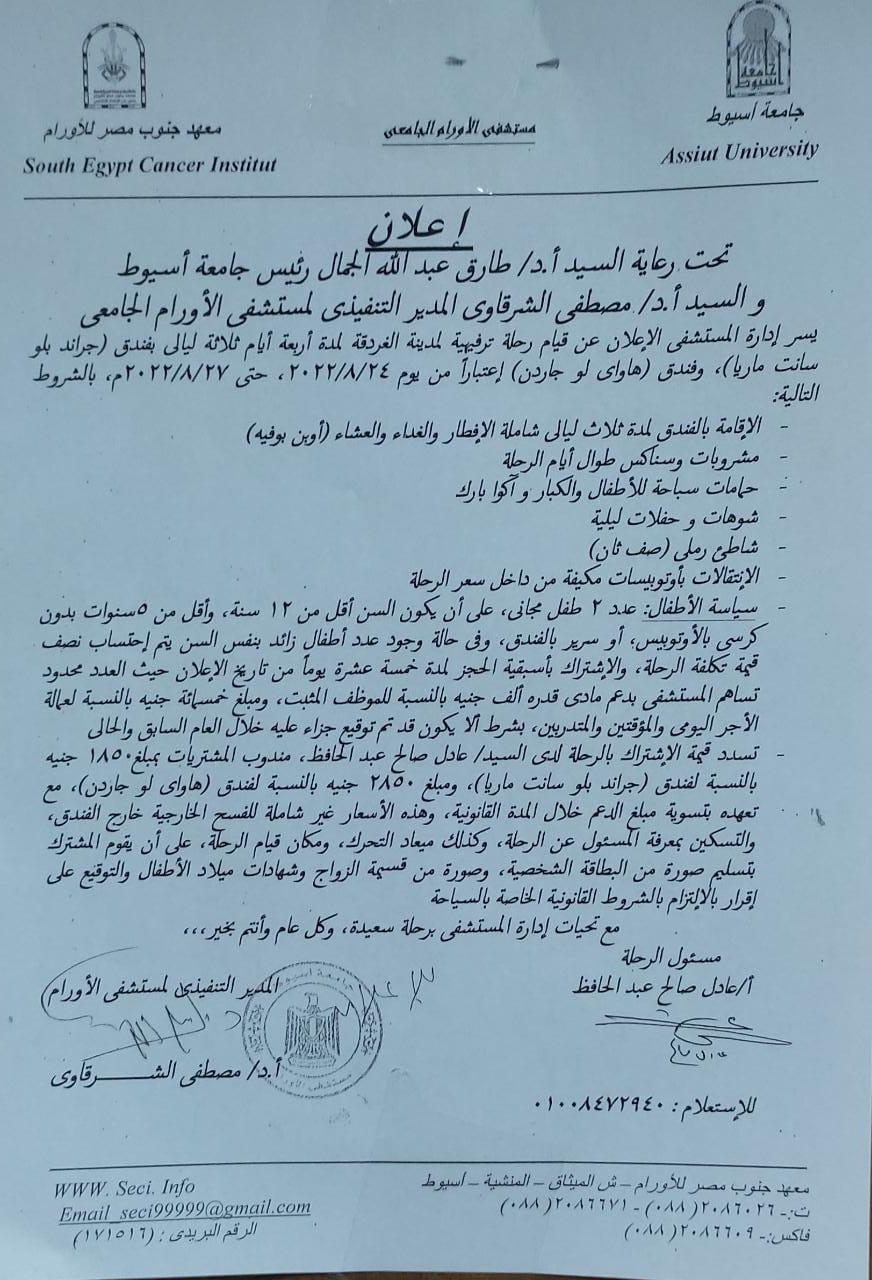 جامعة أسيوط
Assiut University
مستشفى الأورام الجامعى
معهد جنوب مصر للأورام
South Egypt Cancer Institut
إعلان
تحت رعاية السيد أ.د/ طارق عبد الله الجمال رئيس جامعة أسيوط
و السيد أ.د/ مصطفى الشرقاوى المدير التنفيذى لمستشفى الأورام الجامعى
يسر إدارة المستشفى الإعلان عن قيام رحلة ترفيهية لمدينة الغردقة لمدة أربعة أيام ثلاثة ليالى بفندق (جراند بلو
سانت ماريا)، وفندق (هاواى لو جاردن) إعتباراً من يوم ٢٠٢٢/٨/٢٤، حتى ٢٠٢٢/٨/٢٧م، بالشروط
التالية:
- الإقامة بالفندق لمدة ثلاث ليالى شاملة الإفطار والغداء والعشاء (أوبن بوفيه)
- مشروبات وسناكس طوال أيام الرحلة
- حمامات سباحة للأطفال والكبار و آكوا بارك
- شوهات و حفلات ليلية
- شاطئ رملى (صف ثان)
- الإنتقالات بأوتوبيسات مكيفة من داخل سعر الرحلة
- سياسة الأطفال: عدد ٢ طفل مجانى، على أن يكون السن أقل من ١٢ سنة، وأقل من ٥سنوات بدون
كرسى بالأوتوبيس، أو سرير بالفندق، وفى حالة وجود عدد أطفال زائد بنفس السن يتم إحتساب نصف
قيمة تكلفة الرحلة، والإشتراك بأسبقية الحجز لمدة خمسة عشرة يوماً من تاريخ الإعلان حيث العدد محدود
تساهم المستشفى بدعم مادى قدره ألف جنيه بالنسبة للموظف المثبت، ومبلغ خمسمائة جنيه بالنسبة لعمالة
الأجر اليومى والمؤقتين والمتدربين، بشرط ألا يكون قد تم توقيع جزاء عليه خلال العام السابق والحالى
- تسدد قيمة الإشتراك بالرحلة لدى السيد/ عادل صالح عبد الحافظ، مندوب المشتريات بمبلغ ١٨٥٠ جنيه
بالنسبة لفندق (جراند بلو سانت ماريا)، ومبلغ ٢٨٥٠ جنيه بالنسبة لفندق (هاواى لو جاردن)، مع
تعهده بتسوية مبلغ الدعم خلال المدة القانونية، وهذه الأسعار غير شاملة للفسح الخارجية خارج الفندق،
والتسكين بمعرفة المسئول عن الرحلة، وكذلك ميعاد التحرك، ومكان قيام الرحلة، على أن يقوم المشترك
بتسليم صورة من البطاقة الشخصية، وصورة من قسيمة الزواج وشهادات ميلاد الأطفال والتوقيع على
إقرار بالإلتزام بالشروط القانونية الخاصة بالسياحة
مع تحيات إدارة المستشفى برحلة سعيدة، وكل عام وأنتم بخير،،،
مسئول الرحلة
أ/عادل صالح عبد الحافظ
المدير التنفيذى لمستشفى الأورام
أ.د/ مصطفى الشرقاوى
للإستعلام : ٠١٠٠٨٤٧٢٩٤٠
معهد جنوب مصر للأورام – ش الميثاق – المنشية – أسيوط
ت:- ٢٠٨٦٠٢٦ (٠٨٨) - ٢٠٨٦٦٧١ (٠٨٨)
فاكس:- ٢٠٨٦٦٠٩ (٠٨٨)
WWW. Seci. Info
Email_seci99999@gmail.com
الرقم البريدى : (١٧١٥١٦)